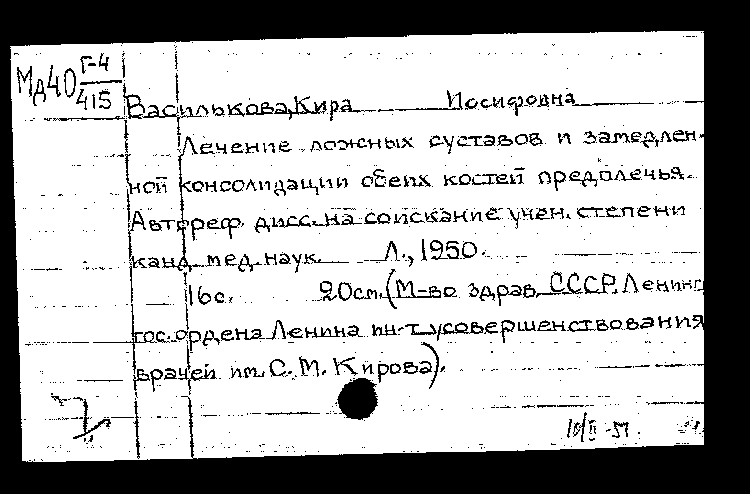 Мд40 Г-4
415
Василькова, Кира Иосифовна
Лечение ложных суставов и замедлен-
ной консолидации обеих костей предплечья.
Автореф. дисс. на соискание учен. степени
канд. мед. наук. Л., 1950.
16с. 20см. (М-во здрав. СССР. Ленингр.
гос. ордена Ленина ин-т усовершенствования
врачей им. С. М. Кирова).
10/II-51.